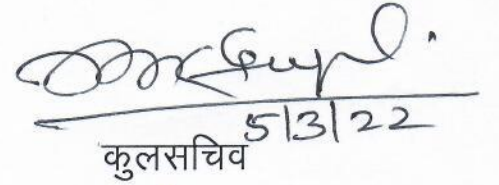 5/3/22
कुलसचिव